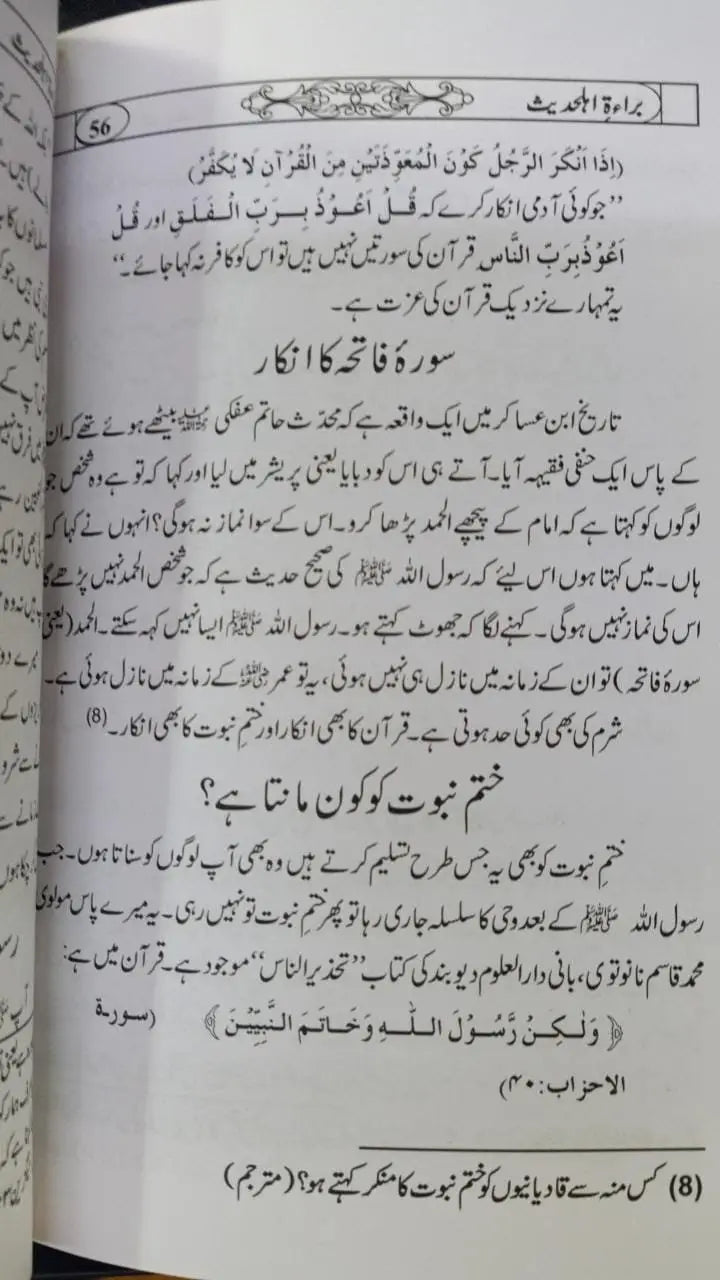 براءةِ اہلحدیث
56
(اِذَا اَنْكَرَ الرَّجُلُ كَوْنَ الْمُعَوِّذَتَيْنِ مِنَ الْقُرْآنِ لَا يُكَفَّرُ)
’’جو کوئی آدمی انکار کرے کہ قُلْ اَعُوْذُ بِرَبِّ الْفَلَقِ اور قُلْ
اَعُوْذُ بِرَبِّ النَّاسِ قرآن کی سورتیں نہیں ہیں تو اس کو کافر نہ کہا جائے۔‘‘
یہ تمہارے نزدیک قرآن کی عزت ہے۔
سورۂ فاتحہ کا انکار
تاریخ ابن عساکر میں ایک واقعہ ہے کہ محدّث حاتم عفکی رحمۃ اللہ علیہ بیٹھے ہوئے تھے کہ ان
کے پاس ایک حنفی فقیہہ آیا۔ آتے ہی اس کو دبایا یعنی پریشر میں لیا اور کہا کہ تو ہے وہ شخص جو
لوگوں کو کہتا ہے کہ امام کے پیچھے الحمد پڑھا کرو۔ اس کے سوا نماز نہ ہوگی؟ انہوں نے کہا کہ
ہاں۔ میں کہتا ہوں اس لیئے کہ رسول اللہ ﷺ کی صحیح حدیث ہے کہ جو شخص الحمد نہیں پڑھے گا
اس کی نماز نہیں ہوگی۔ کہنے لگا کہ جھوٹ کہتے ہو۔ رسول اللہ ﷺ ایسا نہیں کہہ سکتے۔ الحمد (یعنی
سورۂ فاتحہ) تو ان کے زمانہ میں نازل ہی نہیں ہوئی، یہ تو عمر رضی اللہ عنہ کے زمانہ میں نازل ہوئی ہے۔
شرم کی بھی کوئی حد ہوتی ہے۔ قرآن کا بھی انکار اور ختمِ نبوت کا بھی انکار۔(8)
ختم نبوت کو کون مانتا ہے؟
ختمِ نبوت کو بھی یہ جس طرح تسلیم کرتے ہیں وہ بھی آپ لوگوں کو سناتا ہوں۔ جب
رسول اللہ ﷺ کے بعد وحی کا سلسلہ جاری رہا تو پھر ختمِ نبوت تو نہیں رہی۔ یہ میرے پاس مولوی
محمد قاسم نانوتوی، بانی دارالعلوم دیوبند کی کتاب ’’تحذیر الناس‘‘ موجود ہے۔ قرآن میں ہے:
﴿وَلٰكِنْ رَّسُوْلَ اللّٰهِ وَخَاتَمَ النَّبِيّٖنَ﴾ (سورة
الاحزاب: ۴۰)
(8) کس منہ سے قادیانیوں کو ختم نبوت کا منکر کہتے ہو؟ (مترجم)